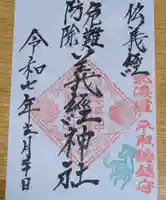 北海道 平取總鎮守
義經
危難
防除
義經神社
令和七年 月 日